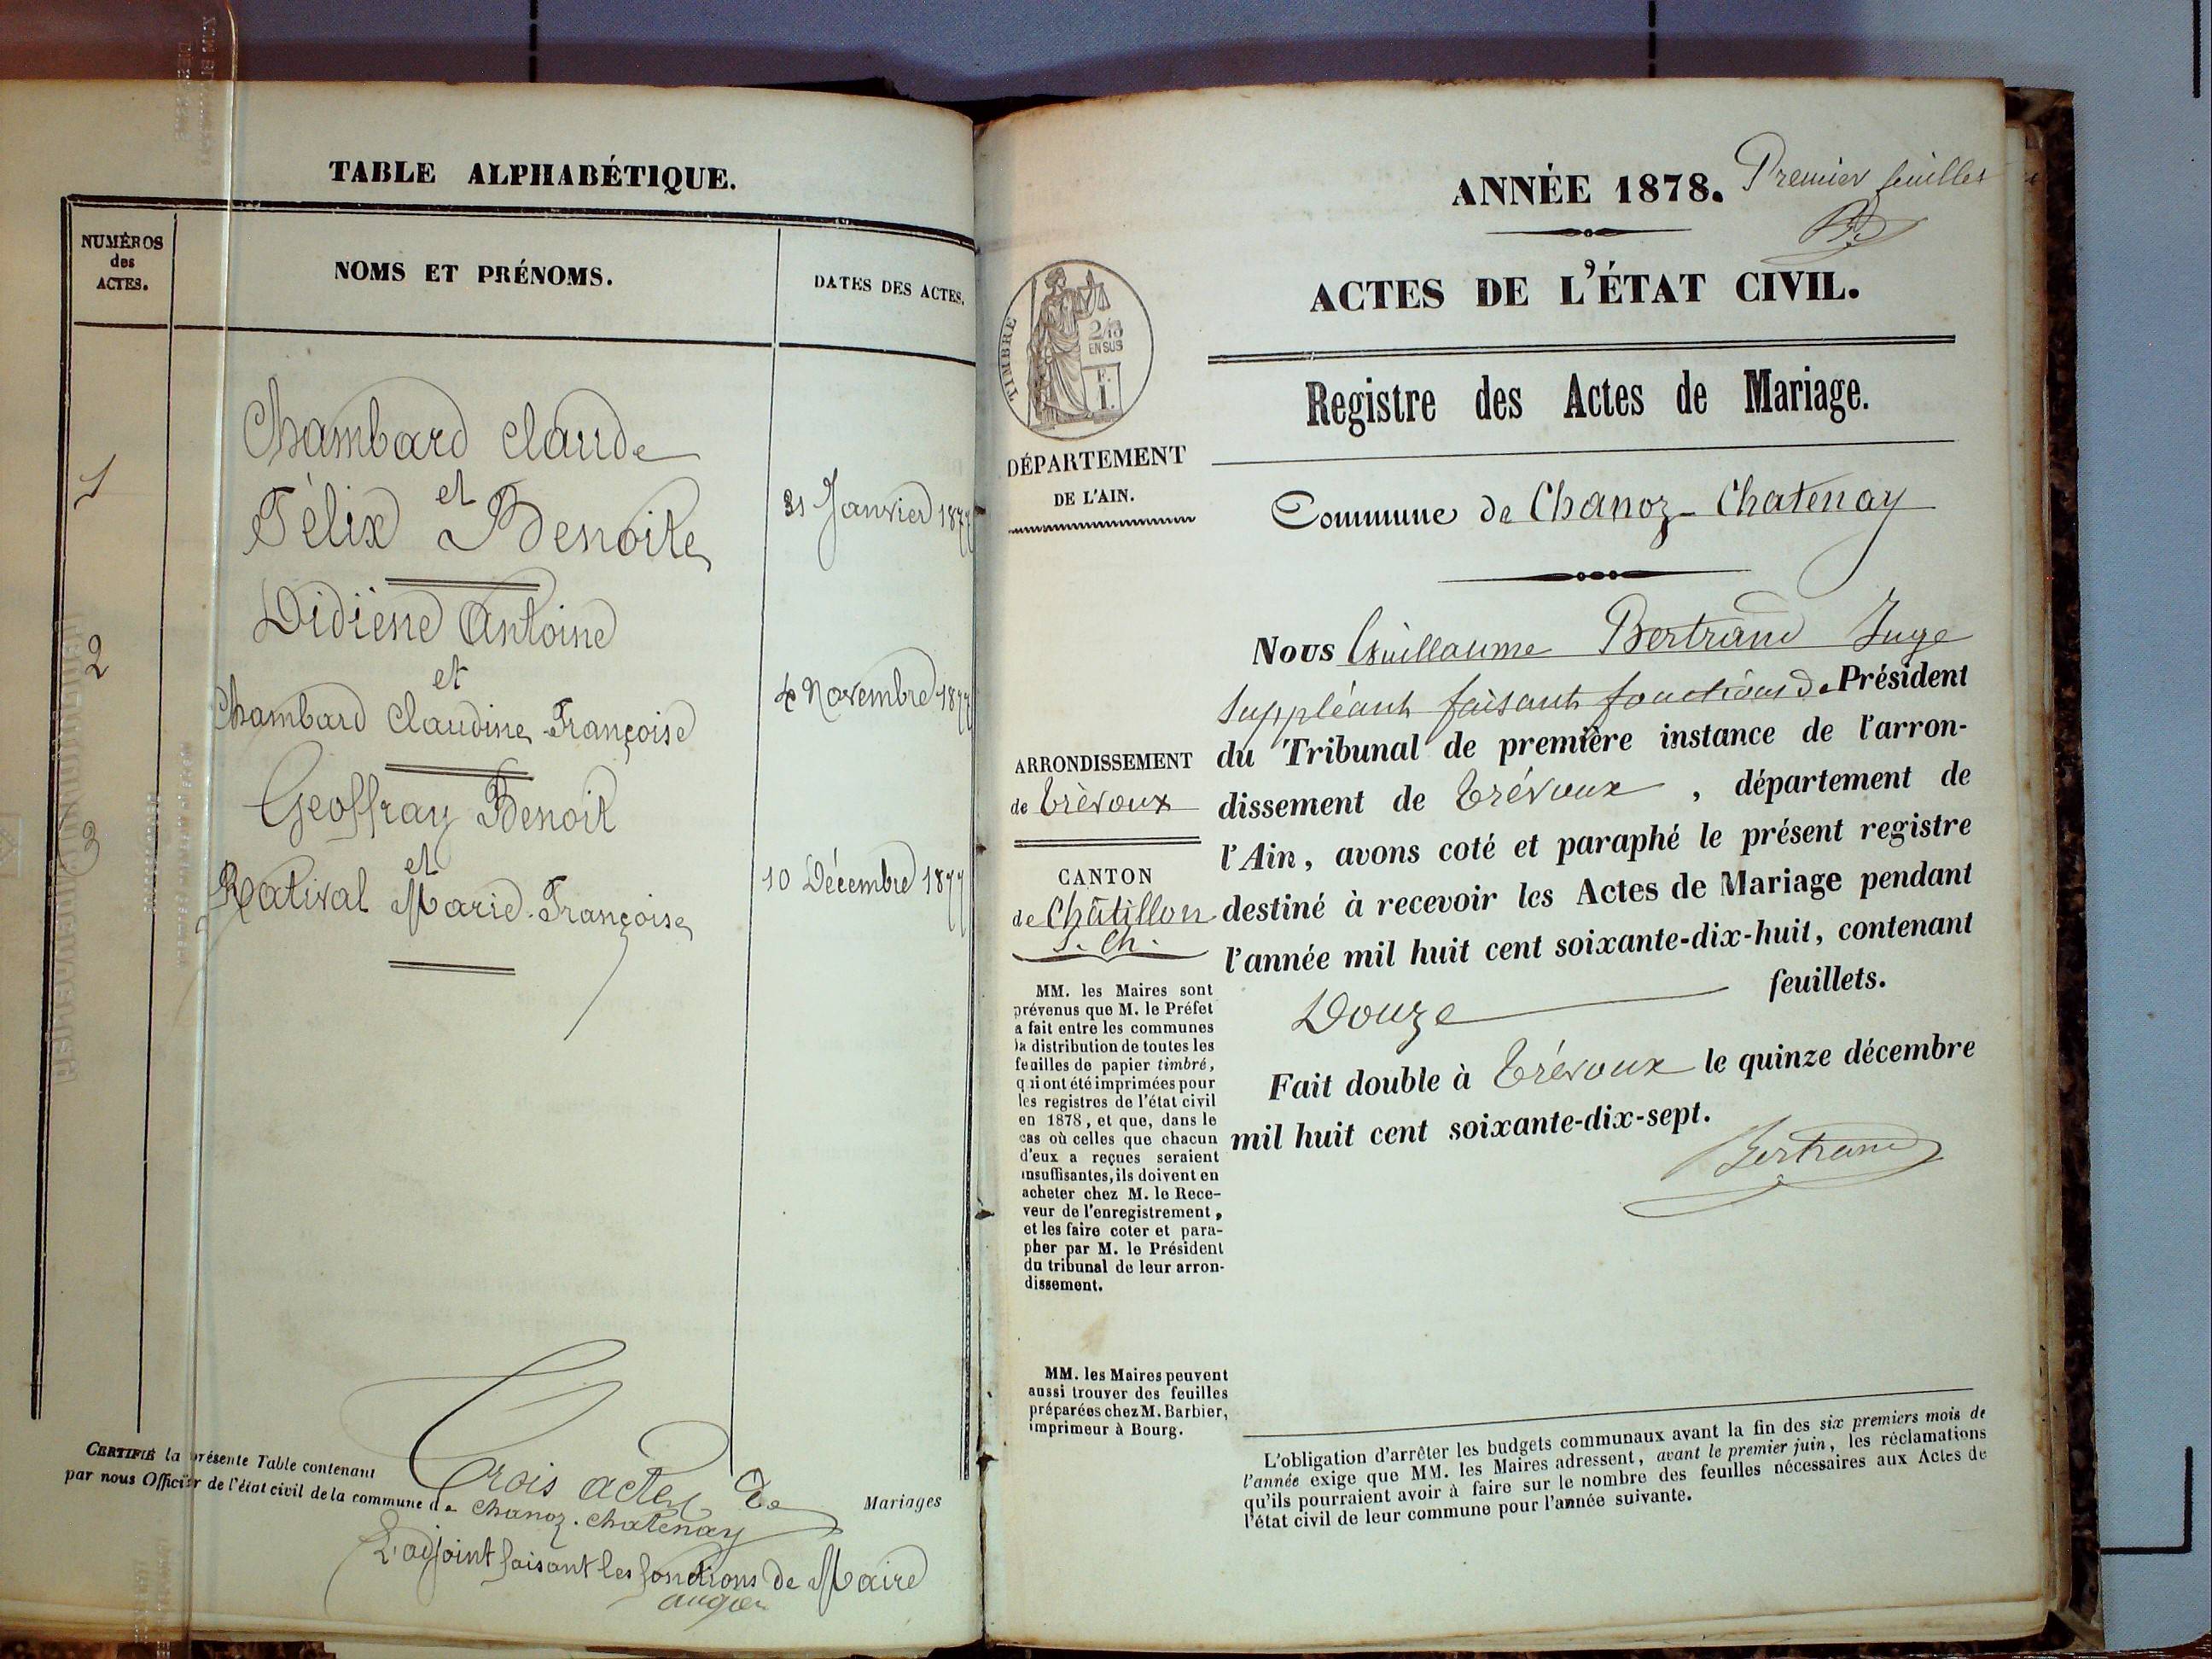 TABLE ALPHABÉTIQUE.
NUMÉROS
des
ACTES.
NOMS ET PRÉNOMS.
DATES DES ACTES.
Chambard Claude
1
et
31 Janvier 1877
Félix Benoite
Didiène Antoine
2
et
4 Novembre 1877
Chambard Claudine Françoise
Geoffray Benoit
3
et
10 Décembre 1877
Rativat Marie-Françoise
CERTIFIÉ la présente Table contenant Trois actes de Mariages
par nous Officier de l'état civil de la commune de Chanoz-Chatenay
L'adjoint faisant les fonctions de Maire
ANNÉE 1878.
Premier feuillet
ACTES DE L'ÉTAT CIVIL.
TIMBRE
EN SUS
Registre des Actes de Mariage.
DÉPARTEMENT
DE L'AIN.
Commune de Chanoz-Chatenay
Nous Guillaume Bertrand Juge
Suppléant faisant fonctions de Président
du Tribunal de première instance de l'arron-
dissement de Trévoux, département de
l'Ain, avons coté et paraphé le présent registre
destiné à recevoir les Actes de Mariage pendant
l'année mil huit cent soixante-dix-huit, contenant
Douze feuillets.
Fait double à Trévoux le quinze décembre
mil huit cent soixante-dix-sept.
Bertrand
ARRONDISSEMENT
de Trévoux
CANTON
de Châtillon
S. Ch.
MM. les Maires sont
prévenus que M. le Préfet
a fait entre les communes
la distribution de toutes les
feuilles de papier timbré,
qui ont été imprimées pour
les registres de l'état civil
en 1878, et que, dans le
cas où celles que chacun
d'eux a reçues seraient
insuffisantes, ils doivent en
acheter chez M. le Rece-
veur de l'enregistrement,
et les faire coter et para-
pher par M. le Président
du tribunal de leur arron-
dissement.
MM. les Maires peuvent
aussi trouver des feuilles
préparées chez M. Barbier,
imprimeur à Bourg.
L'obligation d'arrêter les budgets communaux avant la fin des six premiers mois de
l'année exige que MM. les Maires adressent, avant le premier juin, les réclamations
qu'ils pourraient avoir à faire sur le nombre des feuilles nécessaires aux Actes de
l'état civil de leur commune pour l'année suivante.